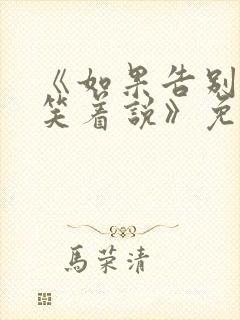 《如果告别
笑着説》免
馬荣清